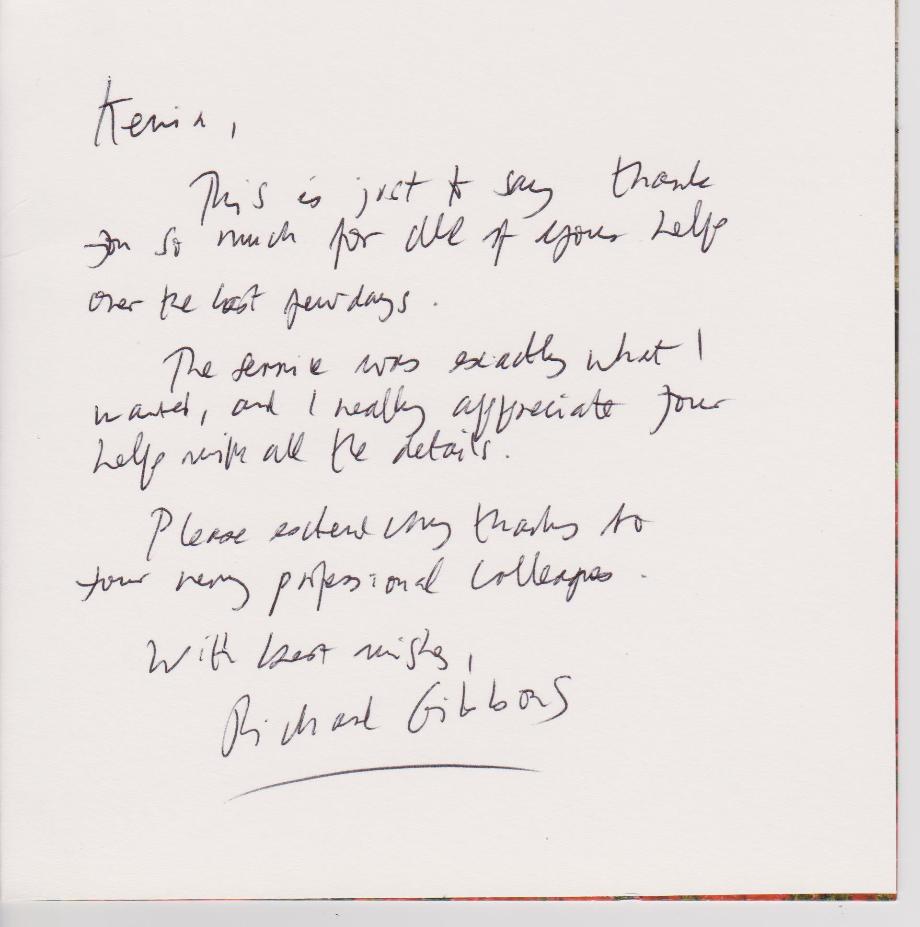 Kevin,
This is just to say thank
you so much for all of your help
over the last few days.
The service was exactly what I
wanted, and I really appreciate your
help with all the details.
Please extend my thanks to
your very professional colleagues.
With best wishes,
Richard Gibbons